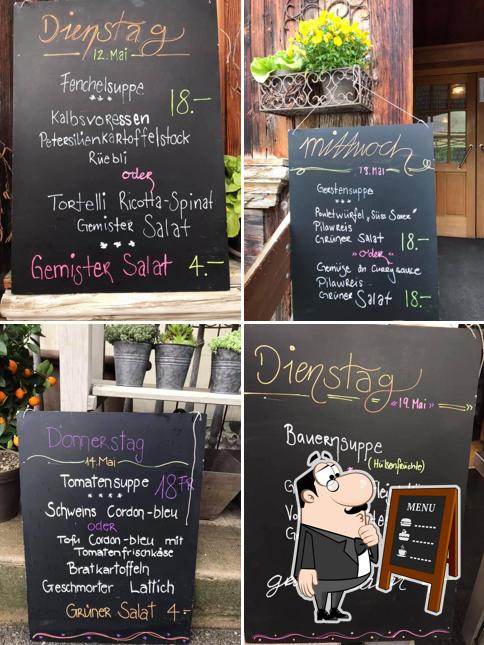 Dienstag
12. Mai
Fenchelsuppe
18.-
Kalbsvoressen
Petersilienkartoffelstock
Rüebli
oder
Tortelli Ricotta-Spinat
Gemister Salat
Gemister Salat 4.-
Mittwoch
13. Mai
Gerstensuppe
Pouletwürfel „Süss Sauer"
Pilawreis
Grüner Salat 18.-
"oder"
Gemüse an Currysauce
Pilawreis
Grüner Salat 18.-
Donnerstag
14. Mai
Tomatensuppe 18 Fr
Schweins Cordon-bleu
oder
Tofu Cordon-bleu mit
Tomatenfrischkäse
Bratkartoffeln
Geschmorter Lattich
Grüner Salat 4.-
Dienstag
«19. Mai»
Bauernsuppe
(Hülsenfrüchte)
MENU